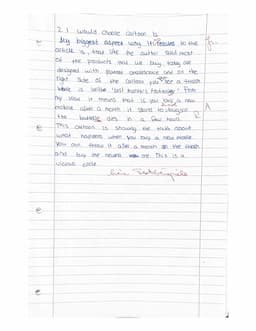 2.) I would choose cartoon B.
My biggest aspect why it relates to the
article is, that like the author said most
of the products that we buy today are
designed with planned obsolescence and on the
right side of the cartoon you see a trash
where is written 'last month's technology'. From
my view it means that is you buy a new
mobile after a month it starts to
the battery dies in a few hours.
This cartoon is showing the truth about
what happens when you buy a new mobile.
You can throw it after a month in the trash
and buy the newest one. This is a
vicious circle.